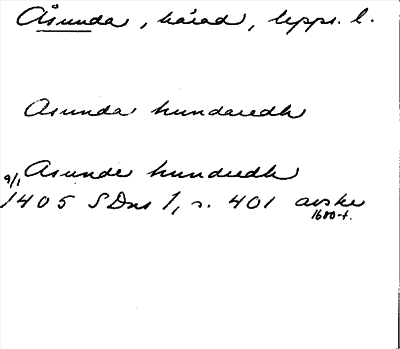 Åsunda, härad, Upps. l.
Asunda hundaredh
Asunde hundredh
9/1 1405 SDns 1, s. 401 avskr
1600-t.